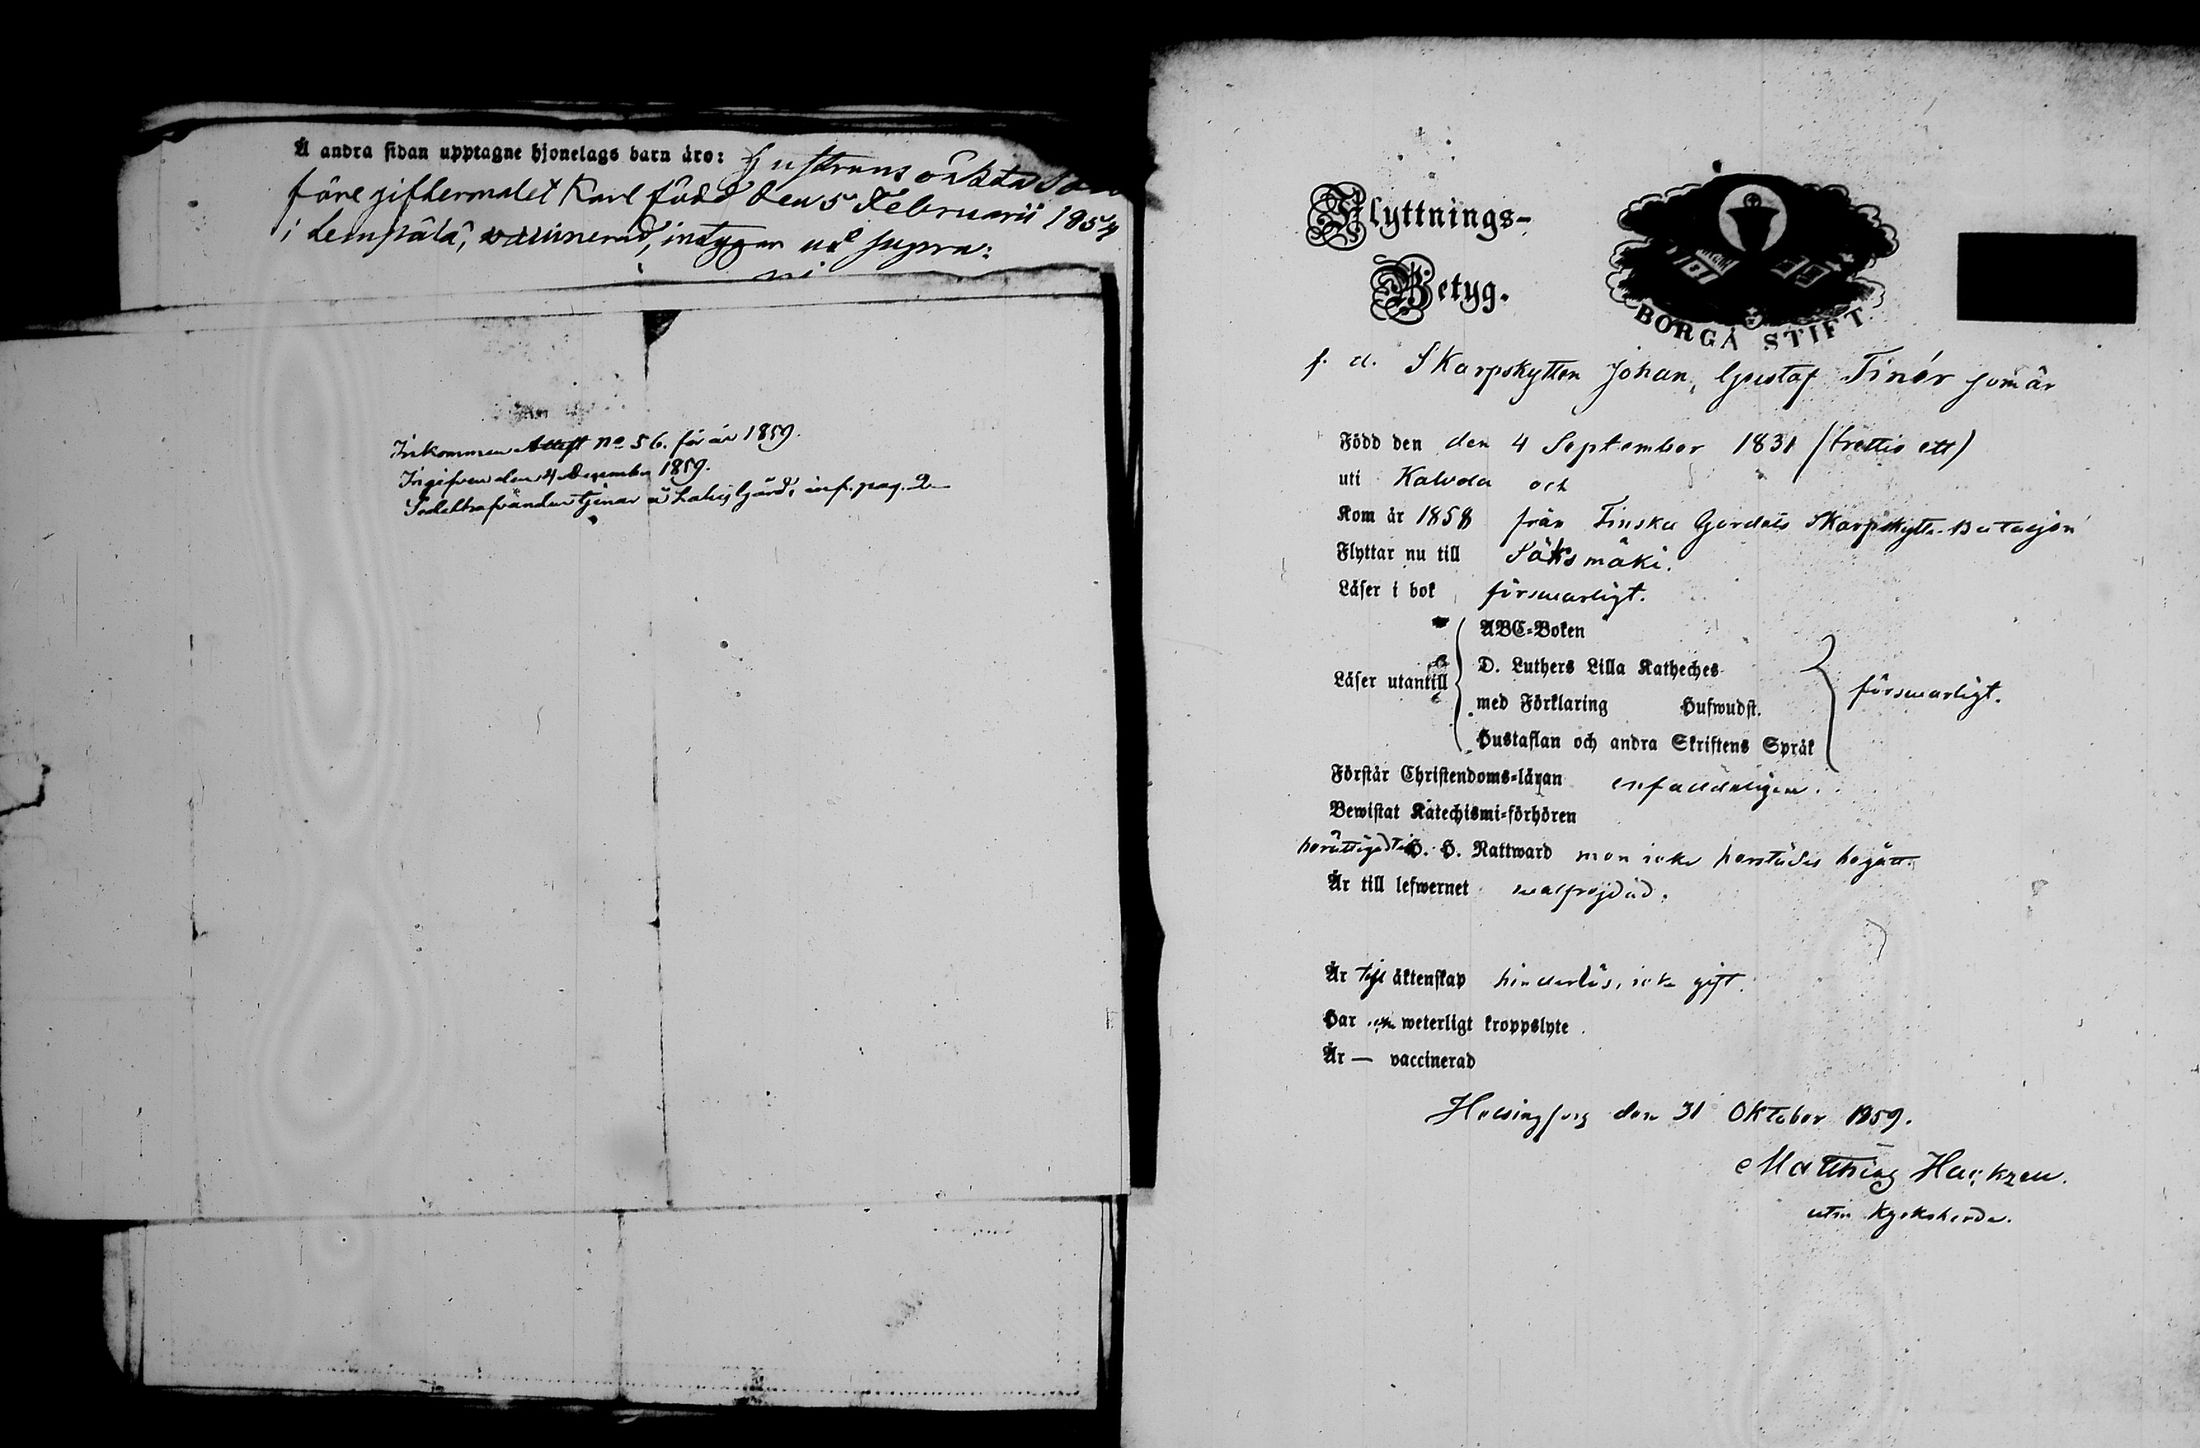 Å andra sidan upptagne hjonelags barn äro: Hustruns oäkta Son
före giftermålet Karl född den 5 Februarii 1854
i Lempälä, vaccinerad, intygar ut supra:
Inkommen Attest no 56. för år 1859.
Ingifven den 4 December 1859.
tjenar å gård, inf. pag. 2
Flyttnings-
Betyg.
BORGÅ STIFT
f. d. Skarpskytten Johan, Gustaf Tinér som är
Född den den 4 September 1831 (trettio ett)
uti Kalvola och
Kom år 1858 från Finska Gardets Skarpskytte-Bataljon
Flyttar nu till Sääksmäki.
Läser i bok försvarligt.
ABC-Boken
D. Luthers Lilla Katheches
Läser utantill
med Förklaring Hufwudst.
försvarligt.
Hustaflan och andra Skriftens Språk
Förstår Christendoms-läran enfalldeligen.
Bewistat Katechismi-förhören
berättigad till H. H. Nattward men icke härstädes begått.
Är till lefwernet välfrejdad.
Är till äktenskap hinderlös, icke gift.
Har icke weterligt kroppslyte
Är — vaccinerad
Helsingfors den 31 Oktober 1859.
Matthias